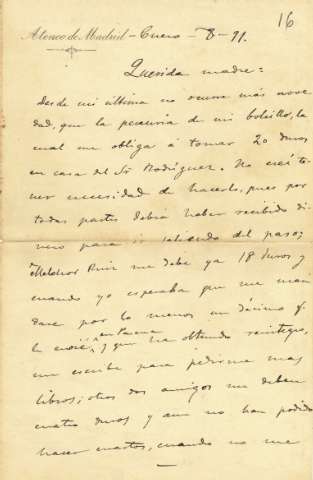 16
Ateneo de Madrid - Enero - 8 - 91.
Querida madre:
Desde mi última no ocurre más nove
dad, que la penuria de mi bolsillo, la
cual me obliga á tomar 20 duros
en casa del Sr Rodríguez. No creí te-
ner necesidad de hacerlo, pues por
todas partes debía haber recibido di-
nero para ir saliendo del paso;
Melchor Ruiz me debe ya 18 duros y
cuando yo esperaba que me man
dase por lo menos un décimo q.
le envié, en Pascua y que ha obtenido reintegro,
me escribe para pedirme mas
libros; otros dos amigos me deben
cuatro duros y aun no han podido
hacer cuartos, cuando no me